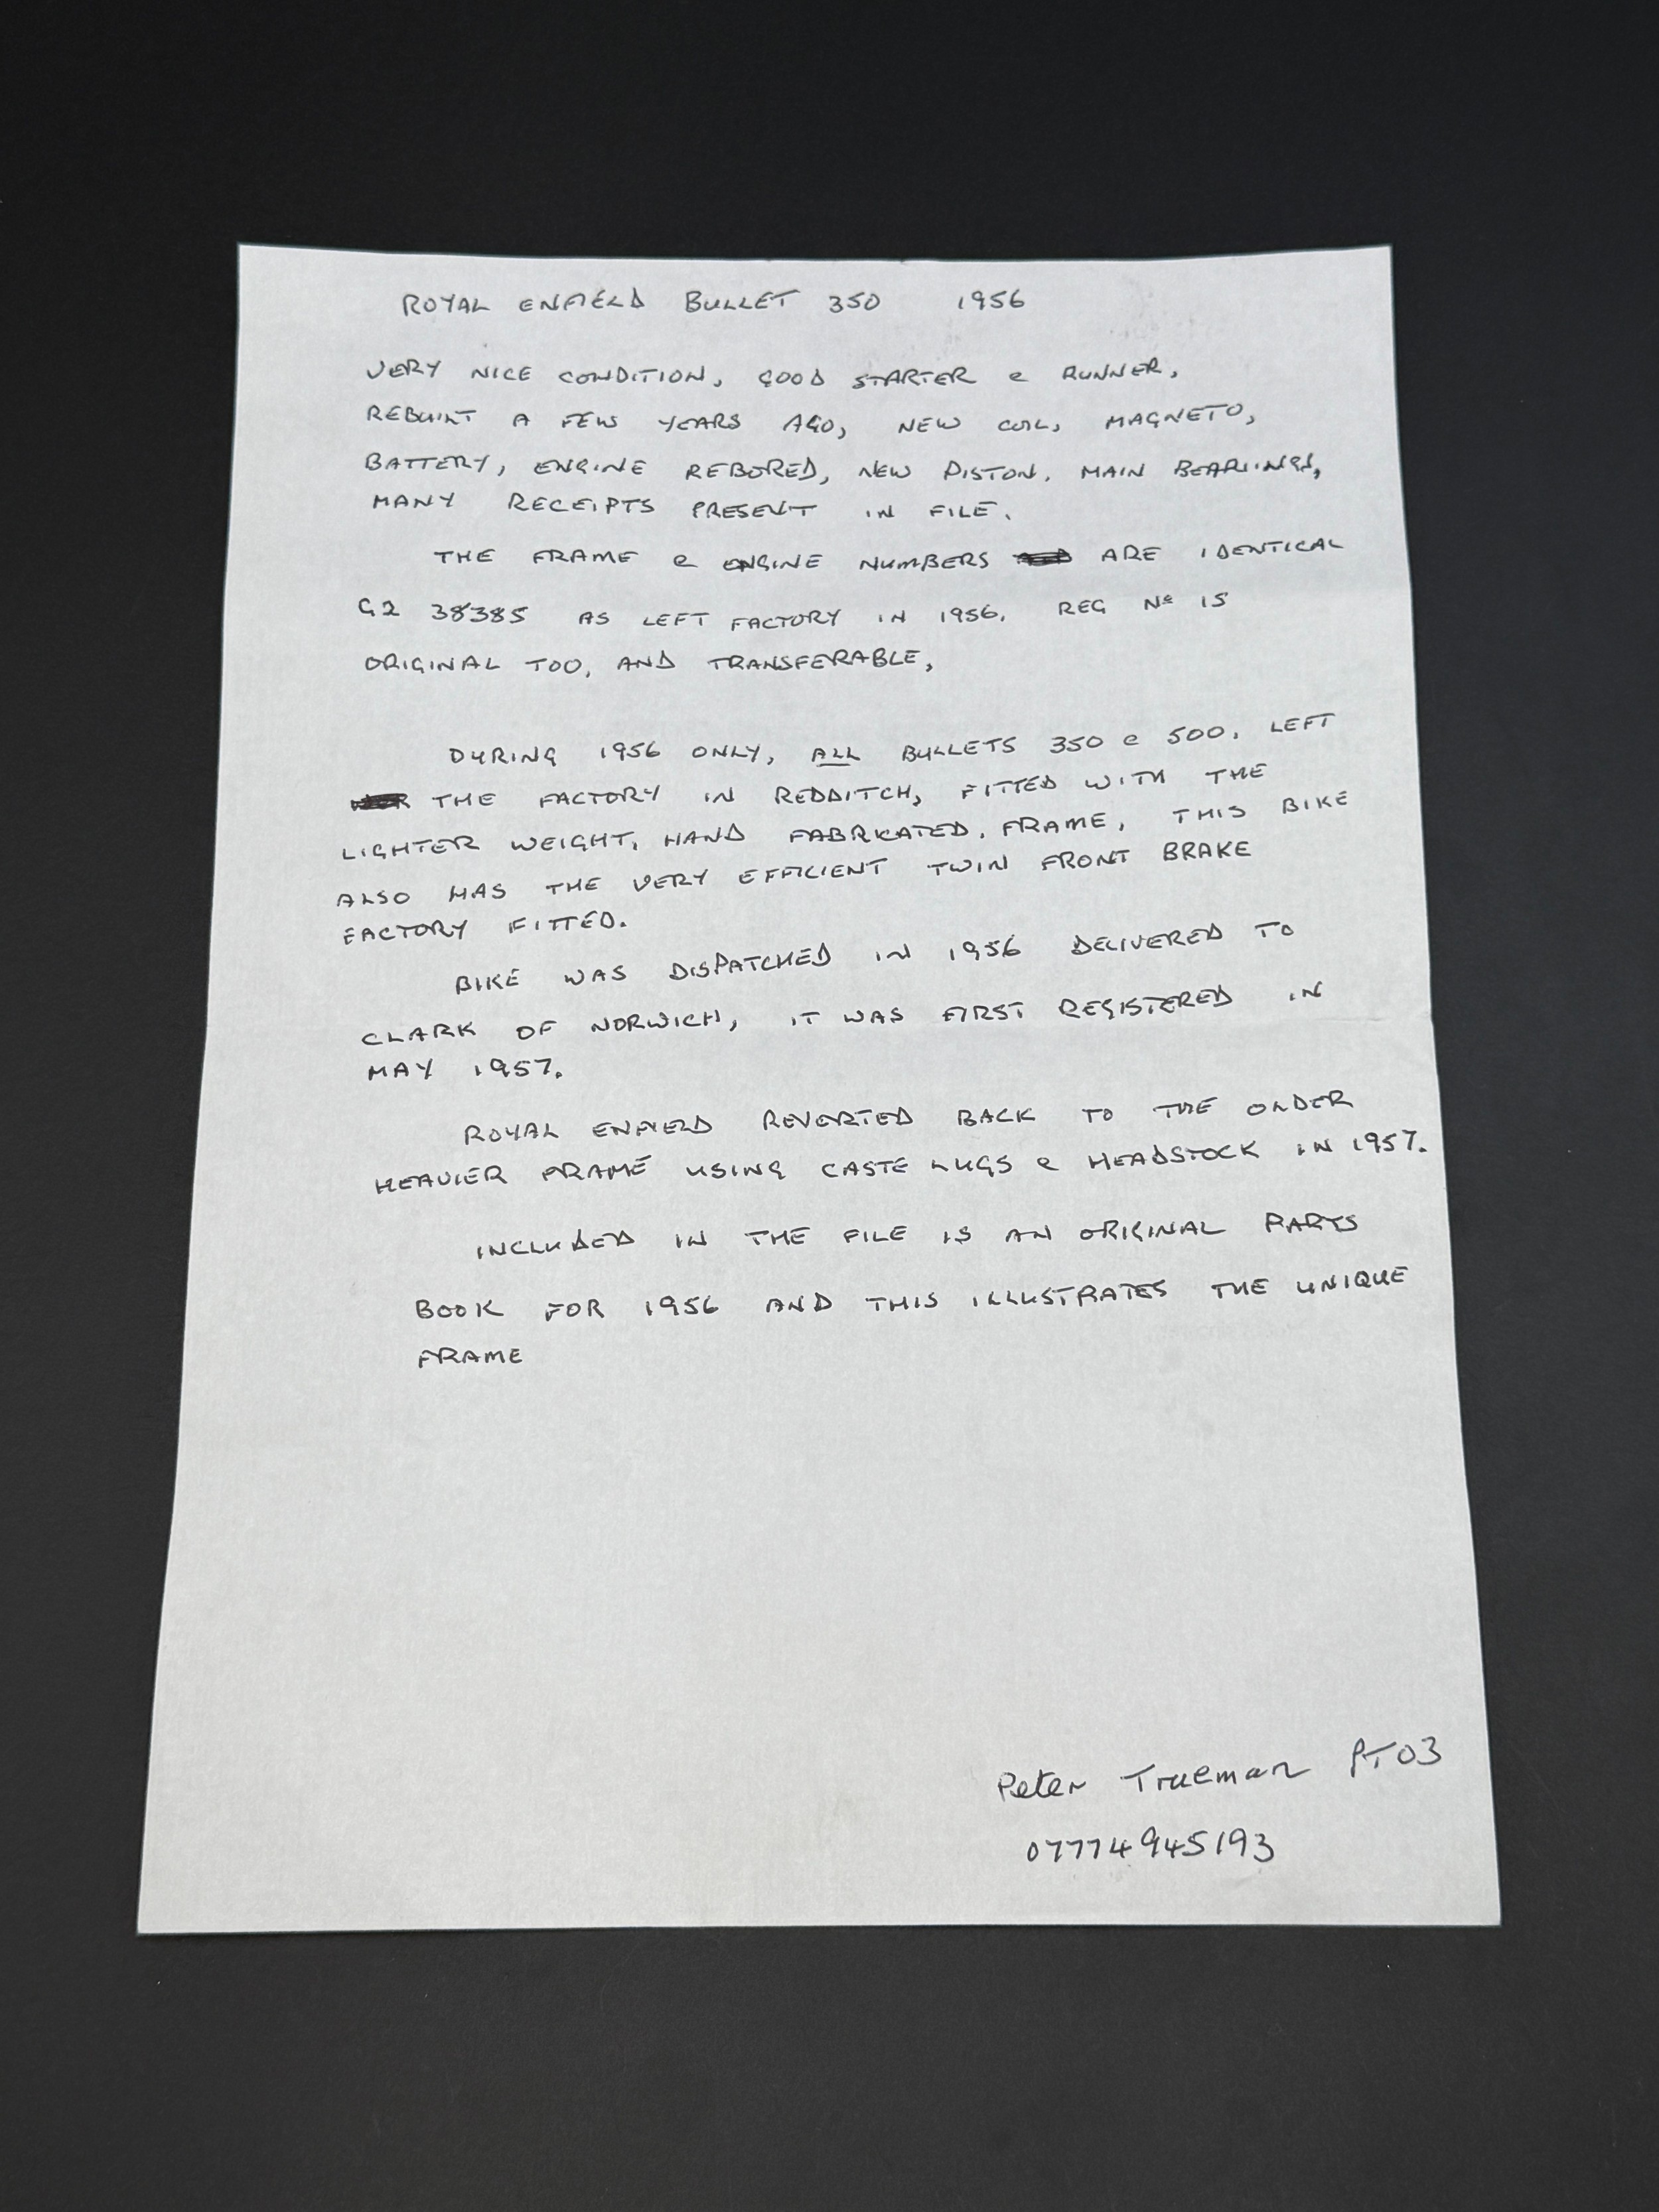 ROYAL ENFIELD BULLET 350 1956
VERY NICE CONDITION, GOOD STARTER & RUNNER,
REBUILT A FEW YEARS AGO, NEW COIL, MAGNETO,
BATTERY, ENGINE REBORED, NEW PISTON, MAIN BEARINGS,
MANY RECEIPTS PRESENT IN FILE.
THE FRAME & ENGINE NUMBERS ARE IDENTICAL
G2 38385 AS LEFT FACTORY IN 1956. REG No IS
ORIGINAL TOO, AND TRANSFERABLE,
DURING 1956 ONLY, ALL BULLETS 350 & 500, LEFT
THE FACTORY IN REDDITCH, FITTED WITH THE
LIGHTER WEIGHT, HAND FABRICATED, FRAME, THIS BIKE
ALSO HAS THE VERY EFFICIENT TWIN FRONT BRAKE
FACTORY FITTED.
BIKE WAS DISPATCHED IN 1956 DELIVERED TO
CLARK OF NORWICH, IT WAS FIRST REGISTERED IN
MAY 1957.
ROYAL ENFIELD REVERTED BACK TO THE OLDER
HEAVIER FRAME USING CASTE LUGS & HEADSTOCK IN 1957.
INCLUDED IN THE FILE IS AN ORIGINAL PARTS
BOOK FOR 1956 AND THIS ILLUSTRATES THE UNIQUE
FRAME
Peter Trueman PT03
07774945193